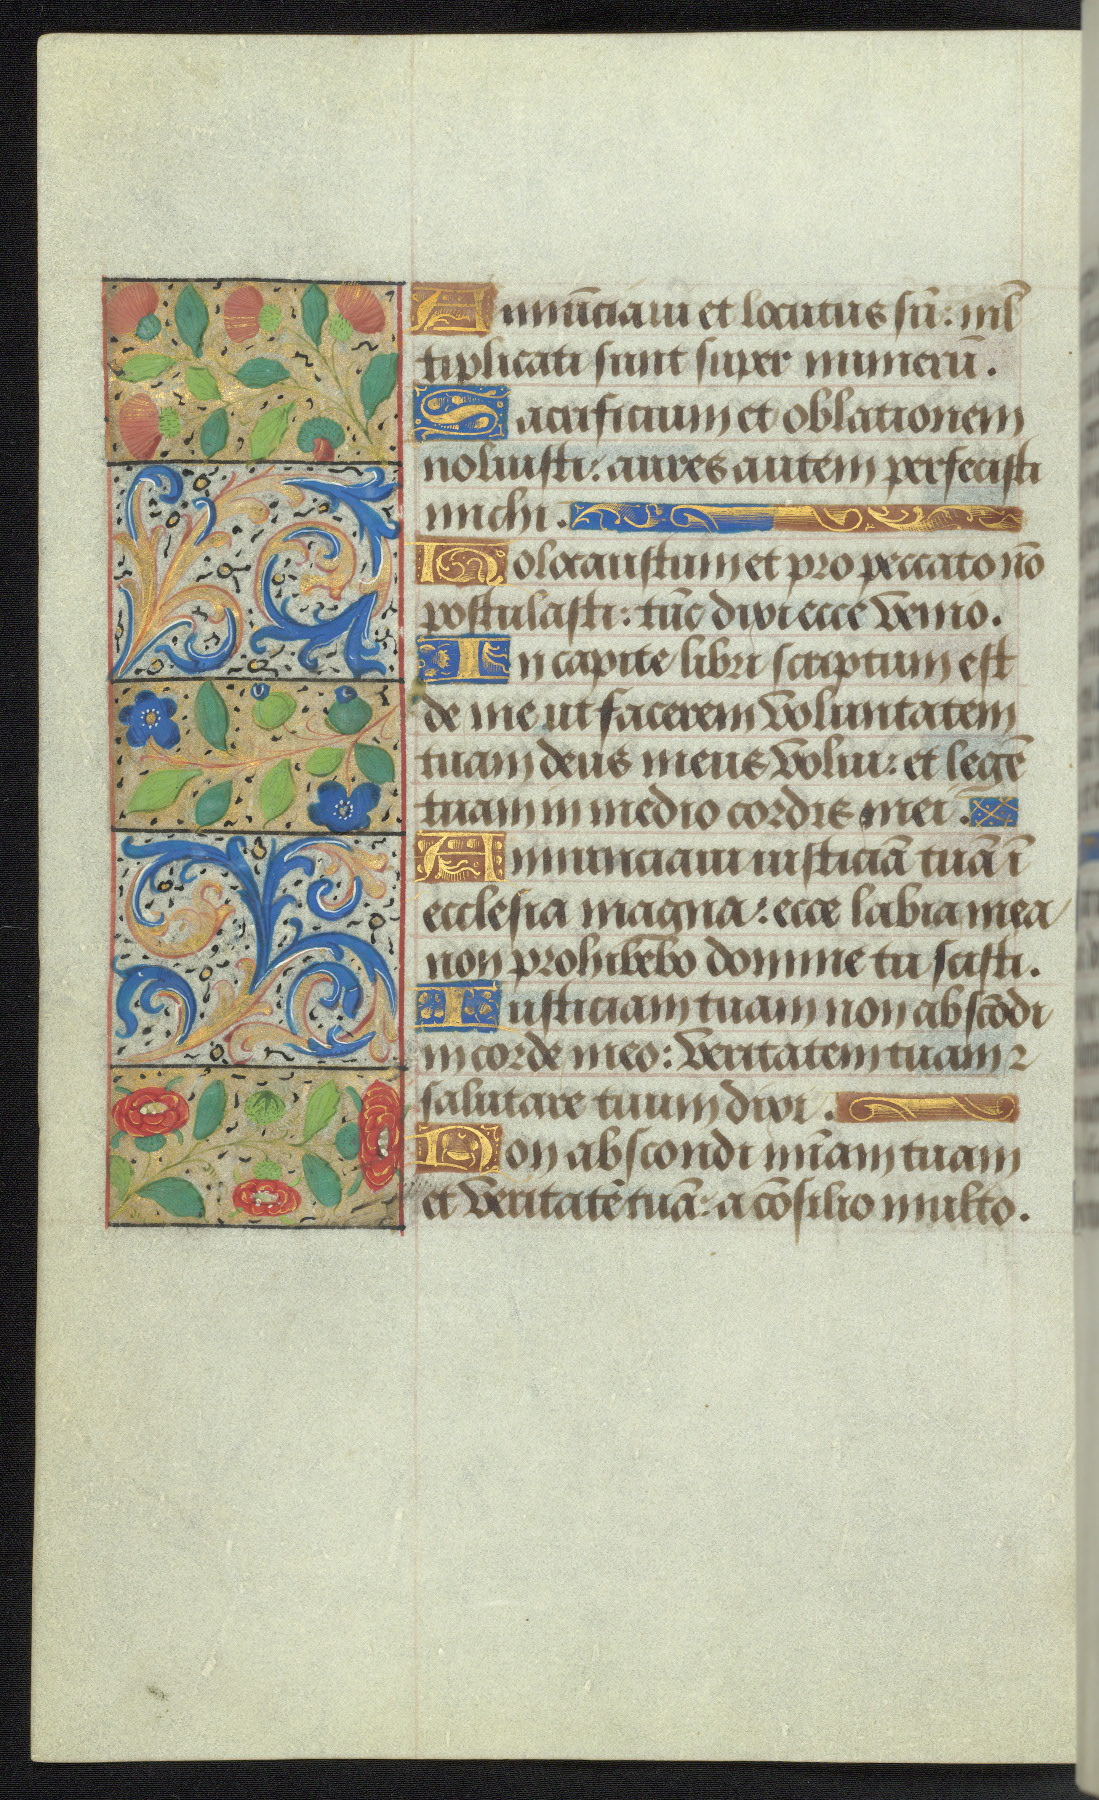 Annūciaui et locutus sū: ml̄
tiplicati sunt super numerū.
Sacrificium et oblationem
noluisti: aures autem perfecisti
michi.
Holocaustum et pro peccato nō
postulasti: tūc dixi ecce venio.
In capite libri scriptum est
de me ut facerem voluntatem
tuam deus meus volui: et legē
tuam in medio cordis mei.
Annunciaui iusticiā tuā ī
ecclesia magna: ecce labia mea
non prohibebo domine tu scisti.
Iusticiam tuam non abscōdi
in corde meo: veritatem tuam ⁊
salutare tuum dixi.
Non abscondi mīam tuam
et veritatē tuā: a cōsilio multo.